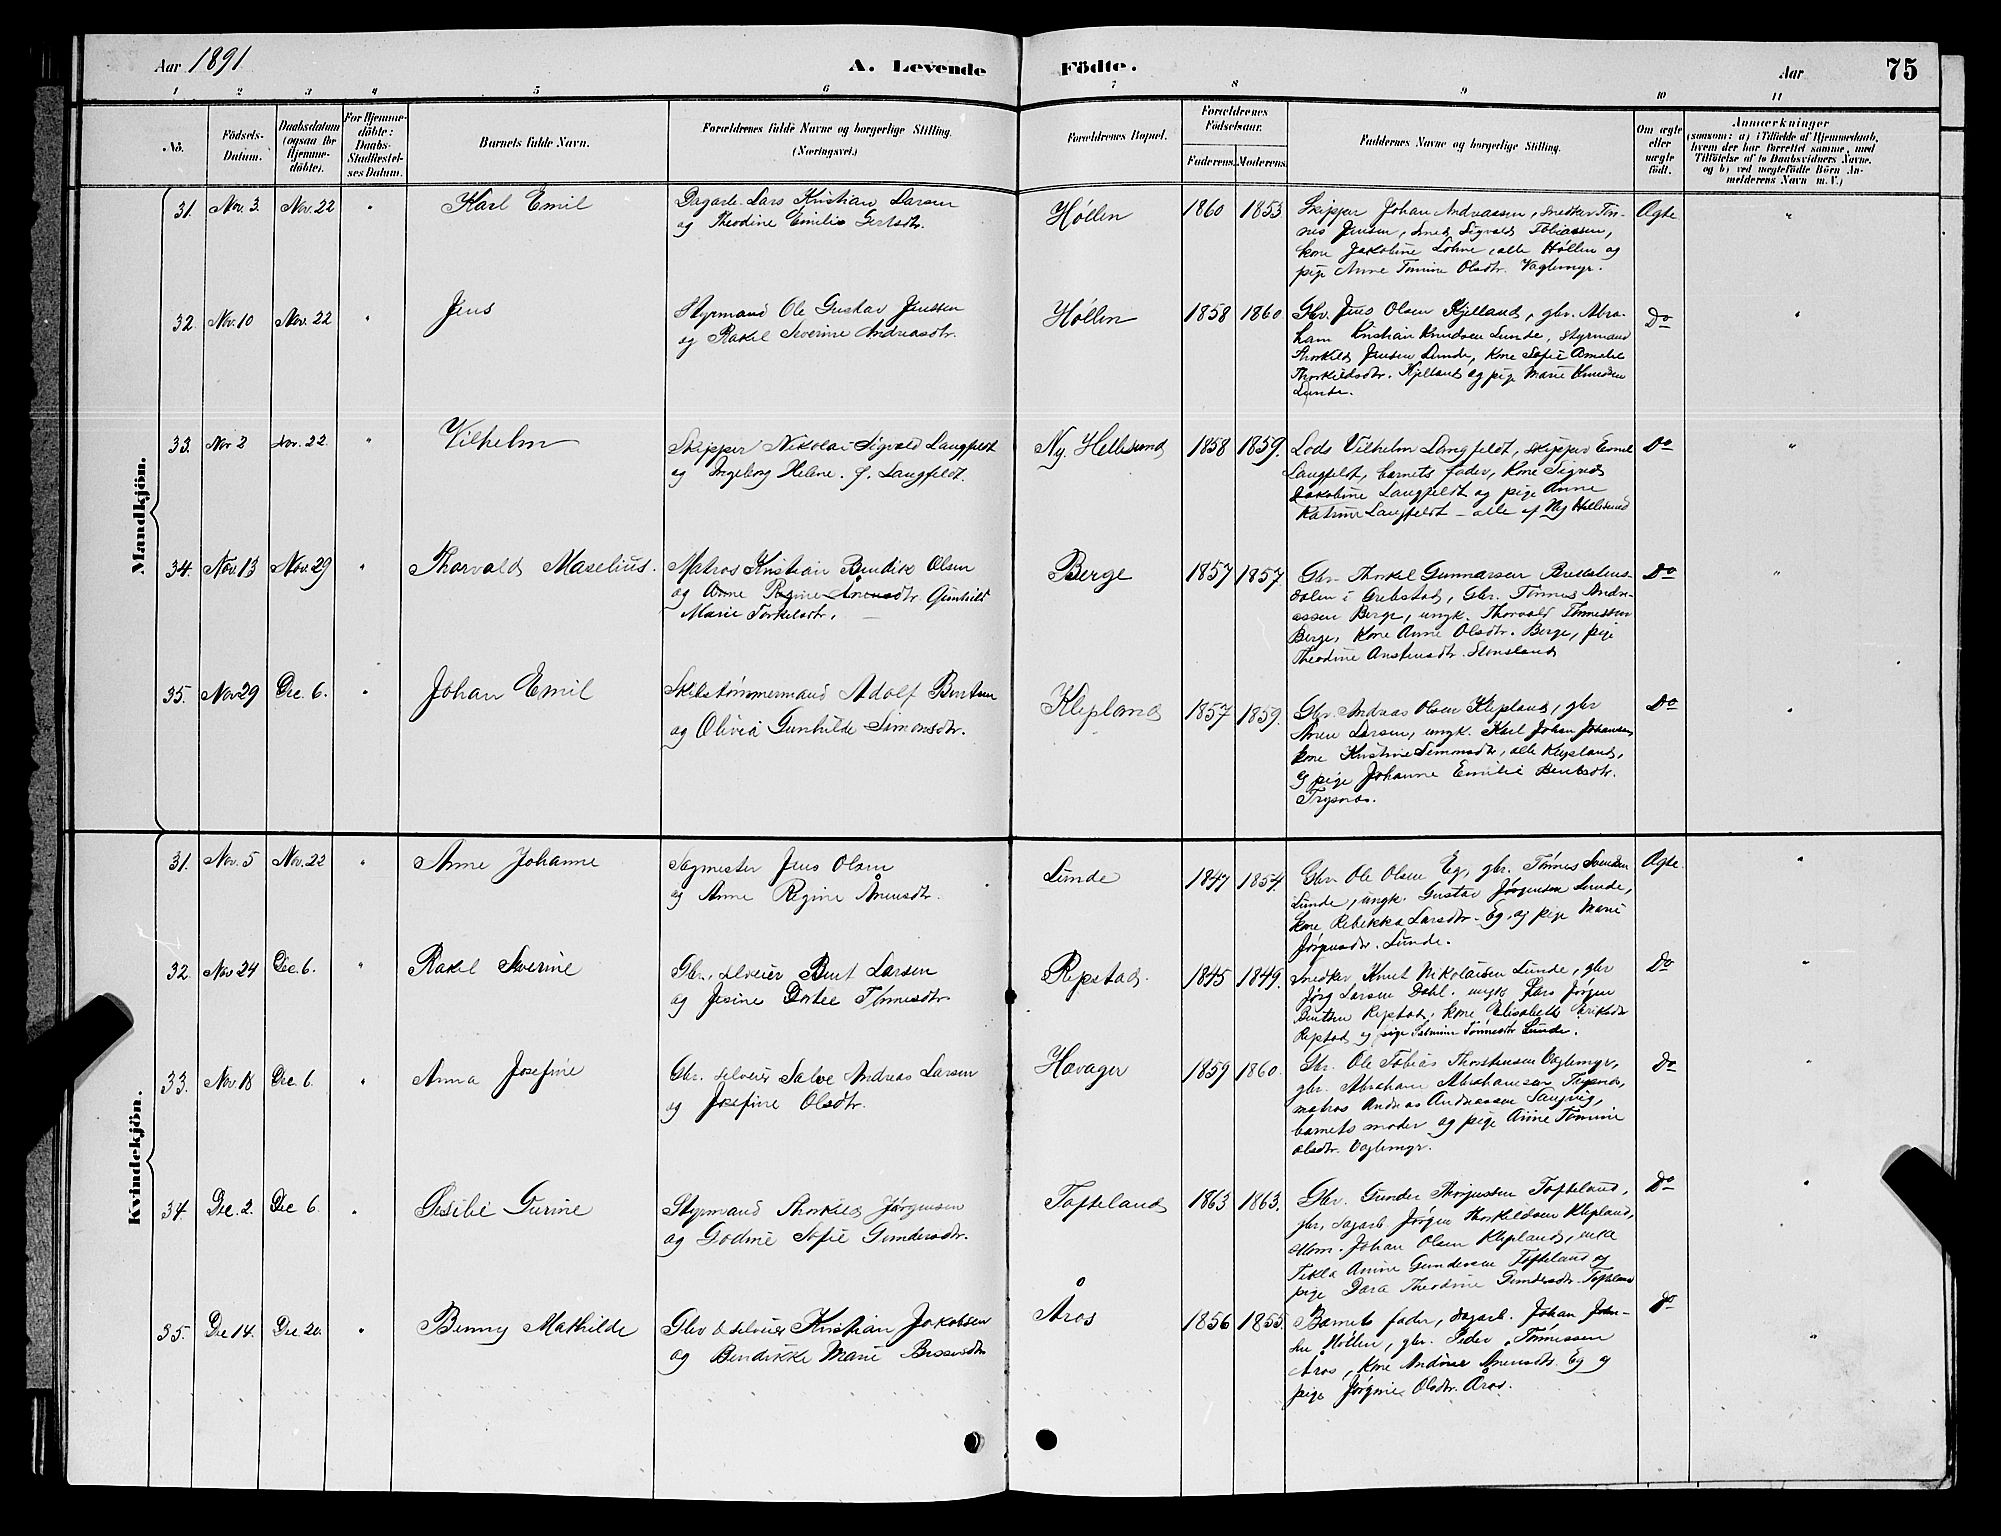 Aar 1891
A. Levende Födte.
Aar
75
1 2 3 4 5 6 7 8 9 10 11
No.
Födsels-
Datum.
Daabsdatum
(ogsaa for
Hjemme-
döbte).
For Hjemme-
döbte:
Daabs-
Stadfæstel-
ses Datum.
Barnets fulde Navn.
Forældrenes fulde Navne og borgerlige Stilling.
(Næringsvei.)
Forældrenes Bopæl.
Forældrenes
Födselsaar.
Faderens. Moderens.
Faddernes Navne og borgerlige Stilling.
Om ægte
eller
uægte
födt.
Anmærkninger
(saasom: a) i Tilfælde af Hjemmedaab,
hvem der har forrettet samme, med
Tilföielse af to Daabsvidners Navne,
og b) ved uægtefödte Börn An-
melderens Navn m. V.)
Mandkjön.
31. Nov. 3. Nov. 22 " Karl Emil
Dagarb. Lars Kristian Larsen
og Theodine Emilie Gertsdtr.
Höllen 1860 1853
Skipper Johan Andreassen, snedker Tön-
nes Jensen, smed Sigvald Tobiassen,
kone Jakobine Lohne, alle Höllen og
pige Anne Tomine Olsdtr. Vaglemyr.
Ægte "
32. Nov. 10 Nov. 22 " Jens
Styrmand Ole Gustav Jenssen
og Rakel Severine Andreasdtr.
Höllen 1858 1860
Gbr. Jens Olsen Kjelland, gbr. Abra-
ham Kristian Knudsen Lunde, styrmand
Thorkild Jensen Lunde, kone Sofie Amalie
Thorkildsdtr. Kjelland og pige Marie Knudsen
Lunde.
Do "
33. Nov 2 Nov. 22 " Vilhelm
Skipper Nikolai Sigvald Langfeldt
og Ingeborg Helene f. Langfeldt.
Ny Hellesund 1858 1859.
Lods Vilhelm Langfeldt, skipper Emil
Langfeldt, barnets fader, kone Signe
Jakobine Langfeldt og pige Anne
Katrine Langfeldt – alle af Ny Hellesund
Do "
34. Nov. 13 Nov. 29 " Thorvald Maselius.
Matros Kristian Bendik Olsen
og Anne Regine Anensdtr. Gunhild
Marie Torkelsdtr.
Berge 1857 1857
Gbr. Thorkel Gunnarsen
dalen i Grebstad, Gbr. Tönnes Andre-
assen Berge, ungk. Thorvald Tönnessen
Berge, kone Anne Olsdtr. Berge, pige
Theodine Anstensdtr. Stensland
Do "
35. Nov 29 Dec. 6. " Johan Emil
Skibstömmermand Adolf Bentsen
og Olivia Gunhilde Simonsdtr.
Klepland 1857 1859.
Gbr. Andreas Olsen Klepland, gbr
Anen Larsen, ungk. Karl Johan Johansen,
kone Kristine Simonsdtr, alle Klepland,
og pige Johanne Emilie Bentsdtr.
Trysnes.
Do "
Kvindekjön.
31. Nov. 5 Nov. 22 " Anne Johanne
Sagmester Jens Olsen
og Anne Regine Ånensdtr.
Lunde 1847 1854.
Gbr. Ole Olsen Eg, gbr. Tönnes Svendsen
Lunde, ungk. Gustav Jörgensen Lunde,
kone Rebekka Larsdtr. Eg, og pige Marie
Jörgensdtr. Lunde.
Ægte. "
32 Nov 24 Dec. 6. " Rakel Severine
Gbr. selveier Bent Larsen
og Jesine Dortee Tönnesdtr.
Repstad. 1845 1849.
Snedker Knut Nikolaisen Lunde, gbr
Jörg Larsen Dahl, ungk Lars Jörgen
Bentsen Repstad, kone Elisabeth Eriksdtr
Repstad og pige Tönnesdtr Lunde.
Do "
33. Nov. 18 Dec. 6. " Anna Josefine
Gbr. selveier Salve Andreas Larsen
og Josefine Olsdtr.
Havager 1859 1860
Gbr. Ole Tobias Thorstensen Vaglemyr,
gbr. Abraham Abrahamsen Trysnes,
matros Andreas Andreassen Langvig,
barnets moder og pige Anne Tomine
Olsdtr. Vaglemyr.
Do "
34. Dec. 2. Dec 6. " Gurine
Styrmand Thorkild Jörgensen
og Godine Sofie Gundersdtr.
Tofteland 1863 1863.
Gbr. Gunder Thorjussen Tofteland,
gbr. Sagarb. Jörgen Thorkildsen Klepland,
Johan Olsen Klepland, enke
Tekla Amine Gundersen Tofteland og
pige Dara Theodine Gundersdtr. Tofteland
Do "
35. Dec 14. Dec 20. " Benny Mathilde
Gbr & selveier Kristian Jakobsen
og Bendikke Marie
Åros 1856 1855.
Barnets fader, dagarb. Johan John-
sen Höllen, gbr. Peder Tönnessen
Åros, kone Andrea Anensdtr. Eg og
pige Jörgine Olsdtr. Åros.
Do "